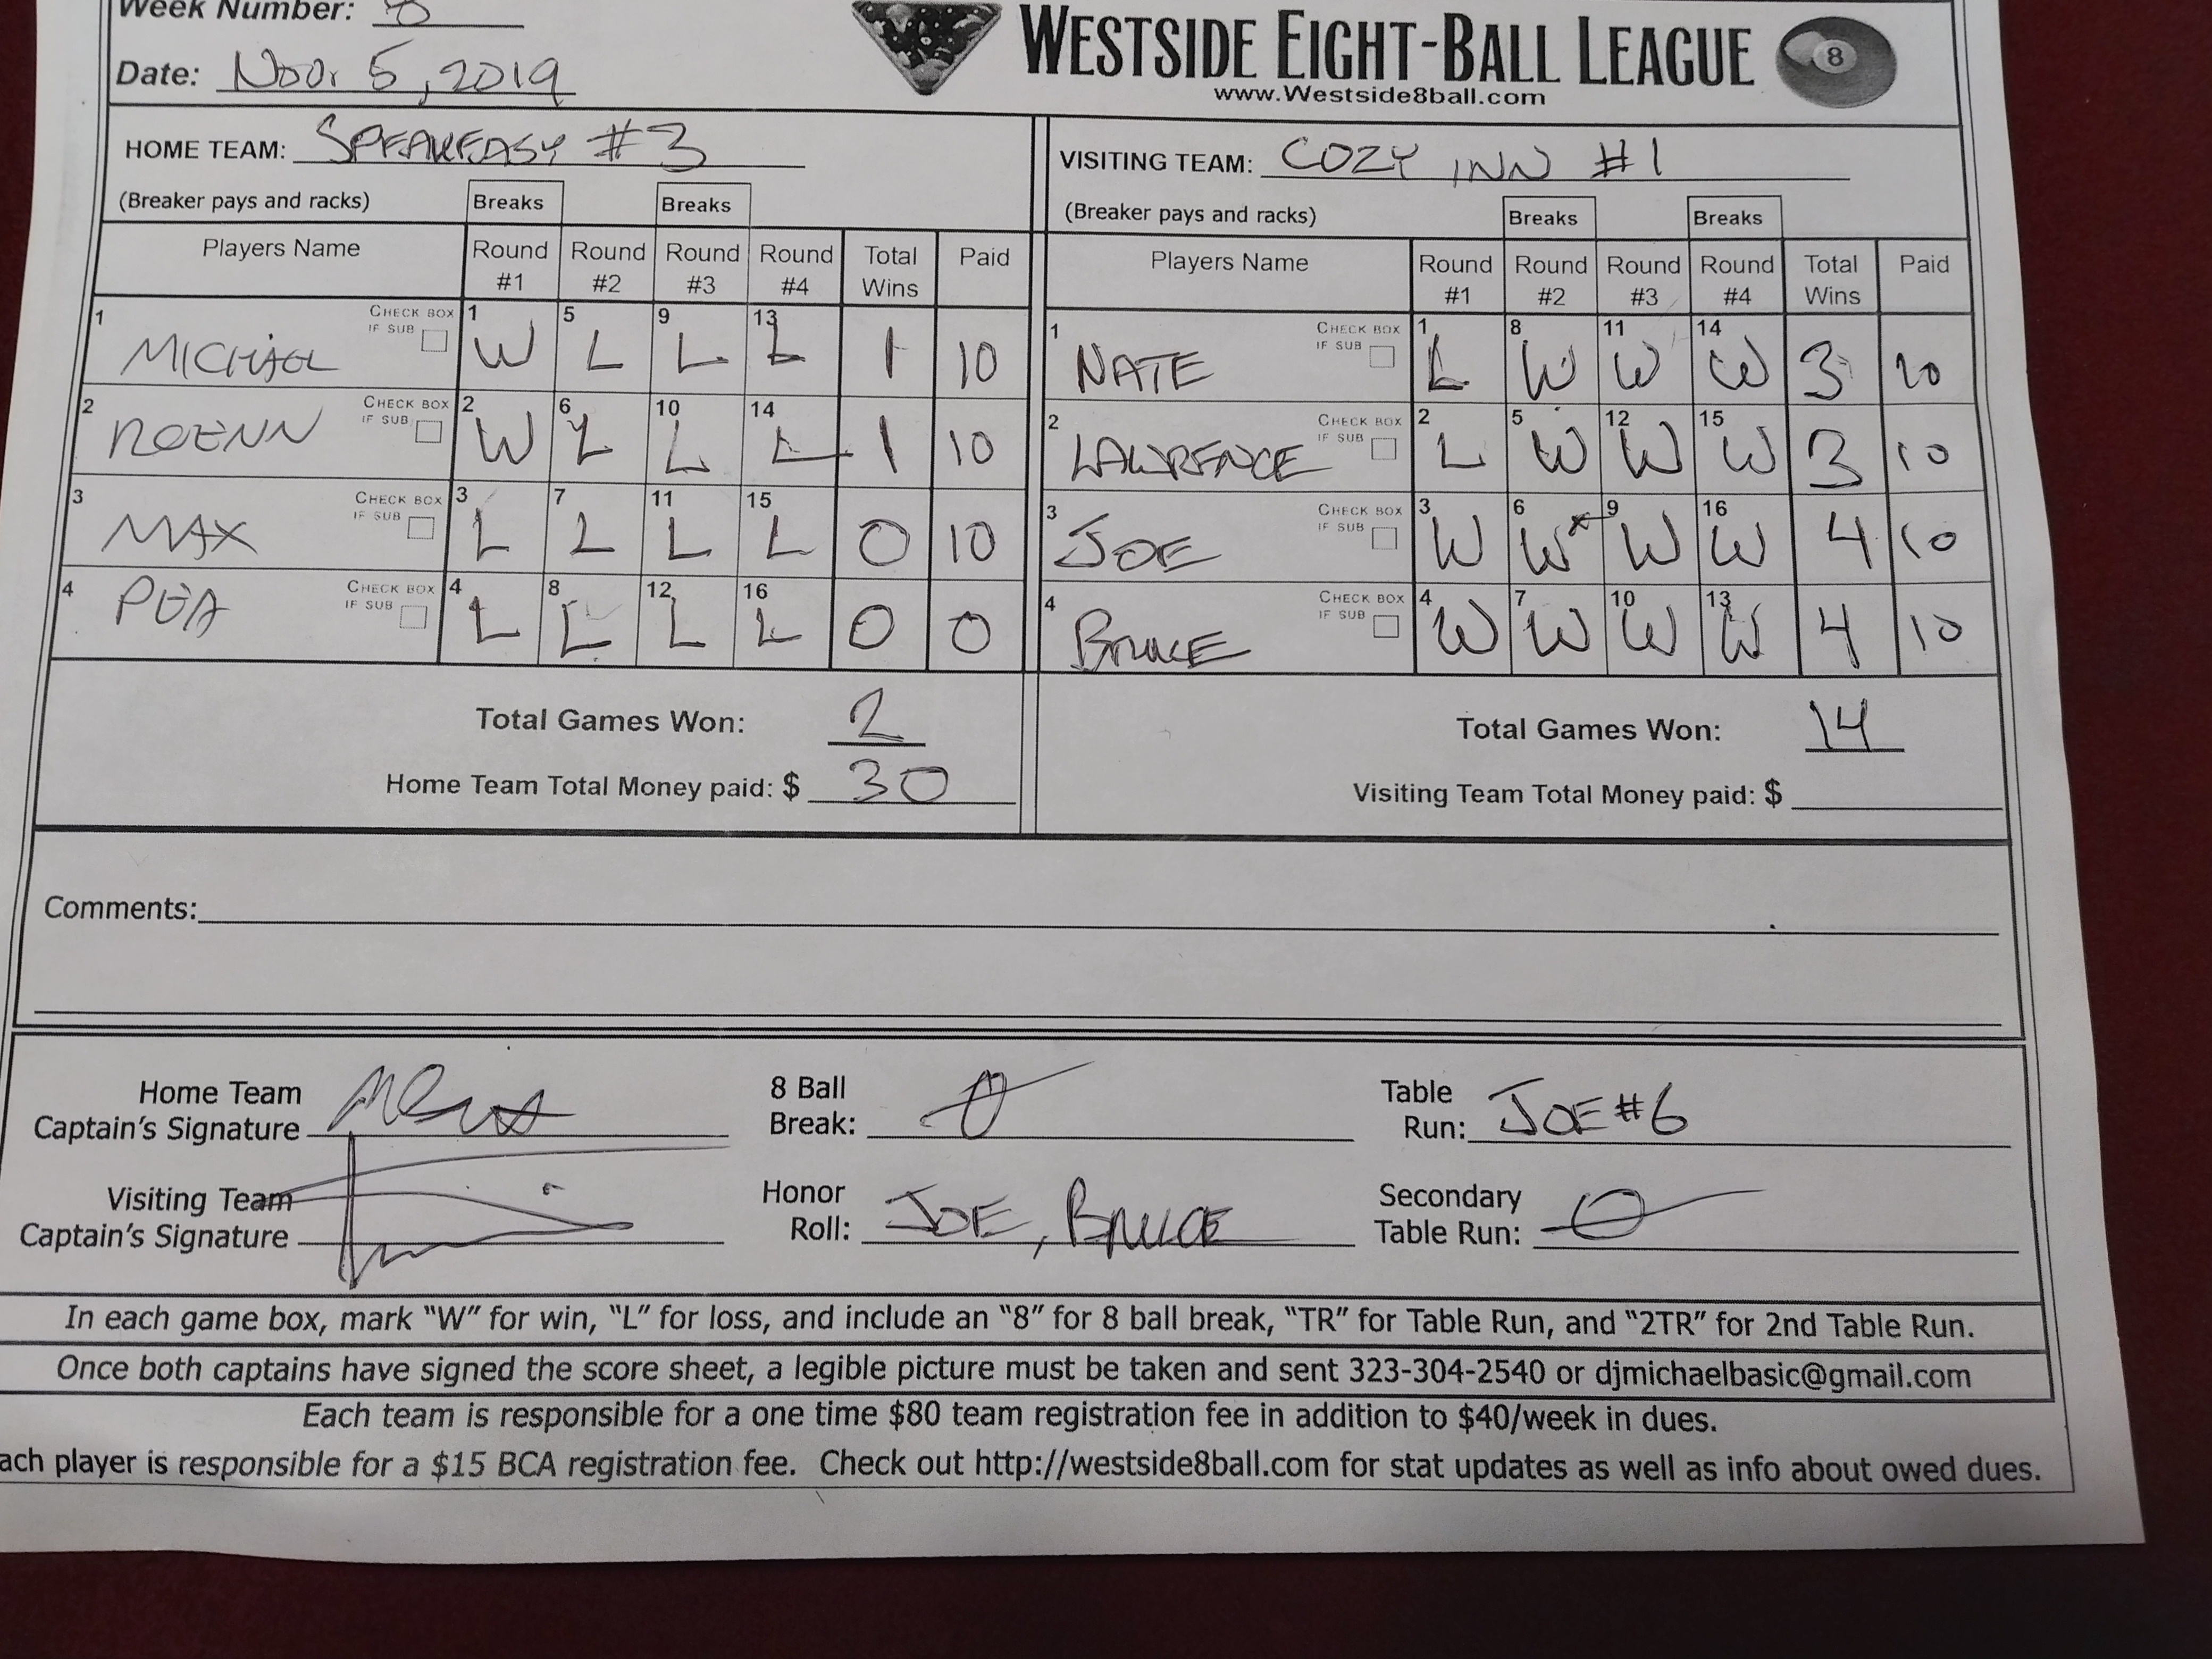 Week Number: 8
WESTSIDE EIGHT-BALL LEAGUE 8
Date: Nov. 5, 2019
www.Westside8ball.com
HOME TEAM: SPEAKEASY #3 VISITING TEAM: COZY INN #1
(Breaker pays and racks) Breaks Breaks (Breaker pays and racks) Breaks Breaks
Players Name Round #1 Round #2 Round #3 Round #4 Total Wins Paid Players Name Round #1 Round #2 Round #3 Round #4 Total Wins Paid
1 MICHAEL CHECK BOX IF SUB 1 W 5 L 9 L 13 L 1 10 1 NATE CHECK BOX IF SUB 1 L 8 W 11 W 14 W 3 10
2 ROENN CHECK BOX IF SUB 2 W 6 L 10 L 14 L 1 10 2 LAWRENCE CHECK BOX IF SUB 2 L 5 W 12 W 15 W 3 10
3 MAX CHECK BOX IF SUB 3 L 7 L 11 L 15 L 0 10 3 JOE CHECK BOX IF SUB 3 W 6 W* 9 W 16 W 4 10
4 PEA CHECK BOX IF SUB 4 L 8 L 12 L 16 L 0 0 4 BRUCE CHECK BOX IF SUB 4 W 7 W 10 W 13 W 4 10
Total Games Won: 2 Total Games Won: 14
Home Team Total Money paid: $ 30 Visiting Team Total Money paid: $
Comments:
Home Team Captain's Signature 8 Ball Break: 0 Table Run: JOE #6
Visiting Team Captain's Signature Honor Roll: JOE, BRUCE Secondary Table Run: 0
In each game box, mark "W" for win, "L" for loss, and include an "8" for 8 ball break, "TR" for Table Run, and "2TR" for 2nd Table Run.
Once both captains have signed the score sheet, a legible picture must be taken and sent 323-304-2540 or djmichaelbasic@gmail.com
Each team is responsible for a one time $80 team registration fee in addition to $40/week in dues.
ach player is responsible for a $15 BCA registration fee. Check out http://westside8ball.com for stat updates as well as info about owed dues.